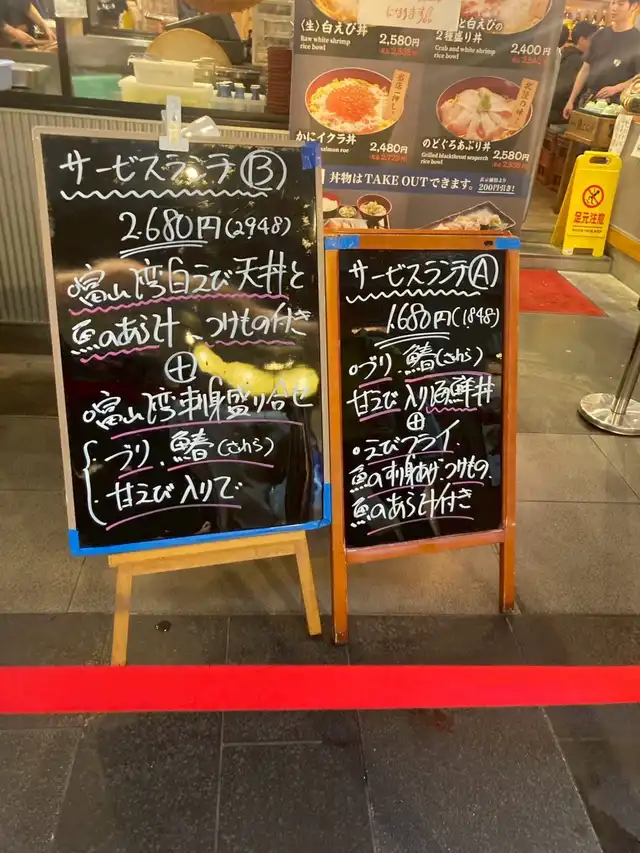 〈生〉白えび丼
2,580円
Raw white shrimp
rice bowl
と白えびの
2種盛り丼
2,400円
Crab and white shrimp
rice bowl
当店一押し
かにイクラ丼
2,480円
salmon roe
のどぐろあぶり丼
2,580円
Grilled blackthroat seaperch
rice bowl
丼物はTAKE OUTできます。
200円引き!
足元注意
サービスランチⒷ
2.680円(2948)
○富山湾白えび天丼と
魚のあら汁、つけもの付き
⊕
○富山湾刺身盛り合せ
ブリ、鰆(さわら)
甘えび入りで
サービスランチⒶ
1.680円(1.848)
○ブリ、鰆(さわら)
甘えび入り海鮮丼
⊕
○えびフライ、
魚の刺身あげ、つけもの、
魚のあら汁付き